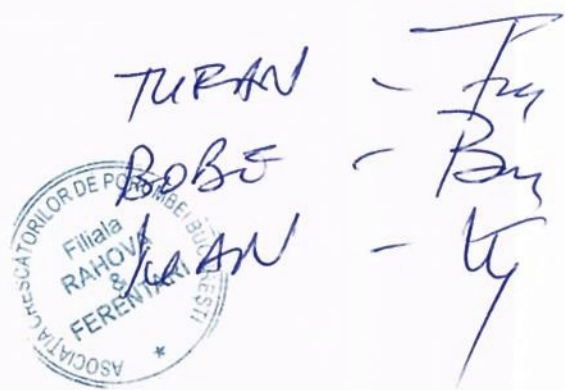 TURAN -
BOBE -
IUAN -
ASOCIAȚIA CRESCĂTORILOR DE PORUMBEI BUCUREȘTI *
Filiala
RAHOVA
&
FERENTARI